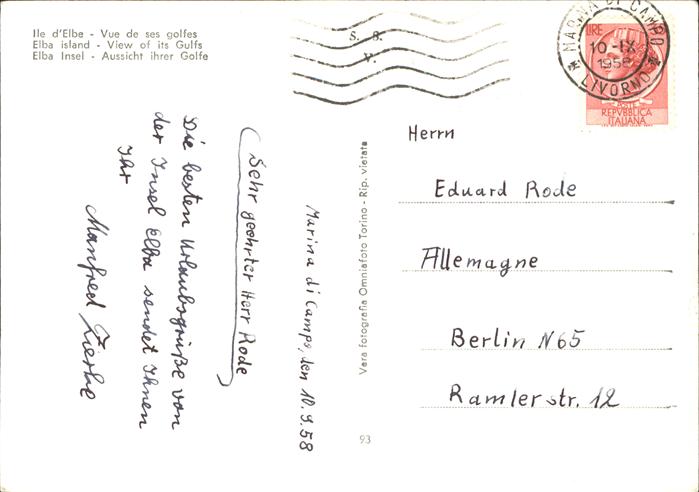 Ile d'Elbe - Vue de ses golfes
Elba island - View of its Gulfs
Elba Insel - Aussicht ihrer Golfe
S. S.
V.
MARINA DI CAMPO
10-IX
1958
LIVORNO
LIRE
POSTE
REPVBBLICA
ITALIANA
Marina di Campo, den 10.9.58
Sehr geehrter Herr Rode
Die besten Urlaubsgrüße von
der Insel Elba sendet Ihnen
Ihr
Manfred
Vera fotografia Omniafoto Torino - Rip. vietata
93
Herrn
Eduard Rode
Allemagne
Berlin N65
Ramlerstr. 12